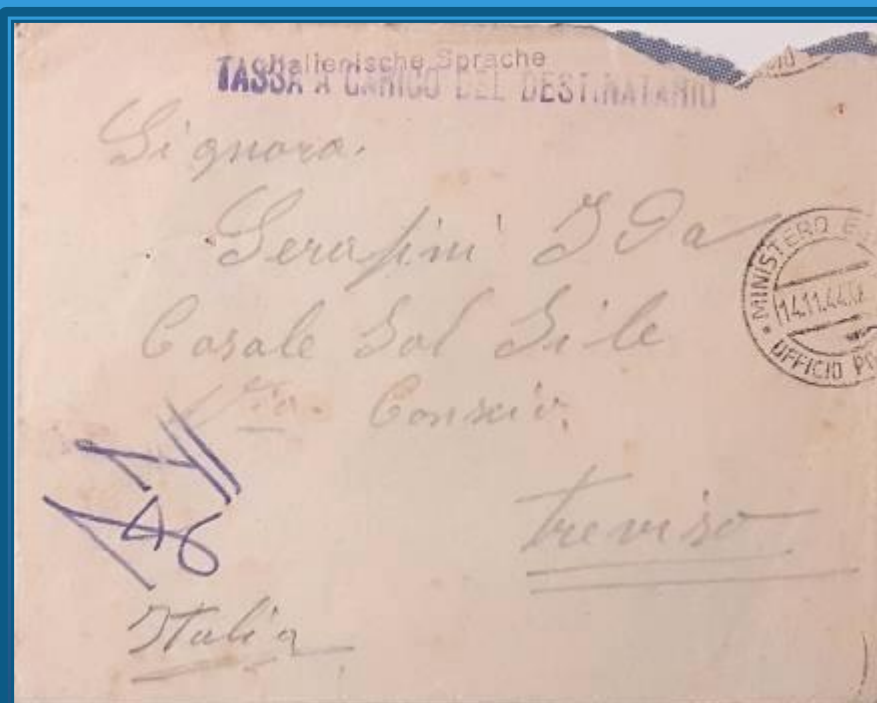 Italienische Sprache
TASSA A CARICO DEL DESTINATARIO
Signora.
Serafini Ida
Casale Sol Sile
Via Conscio.
Treviso
Italia
MINISTERO E
14.11.44
UFFICIO PO